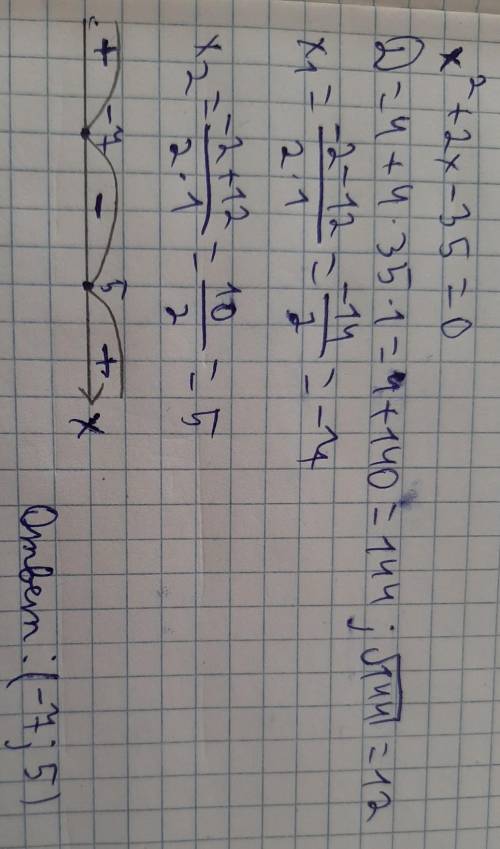 x² + 2x - 35 = 0
D = 4 + 4 · 35 · 1 = 4 + 140 = 144 ; √144 = 12
x1 = -2-12 / 2·1 = -14 / 2 = -7
x2 = -2+12 / 2·1 = 10 / 2 = 5
+ -7 - 5 + x
Ответ: (-7; 5)